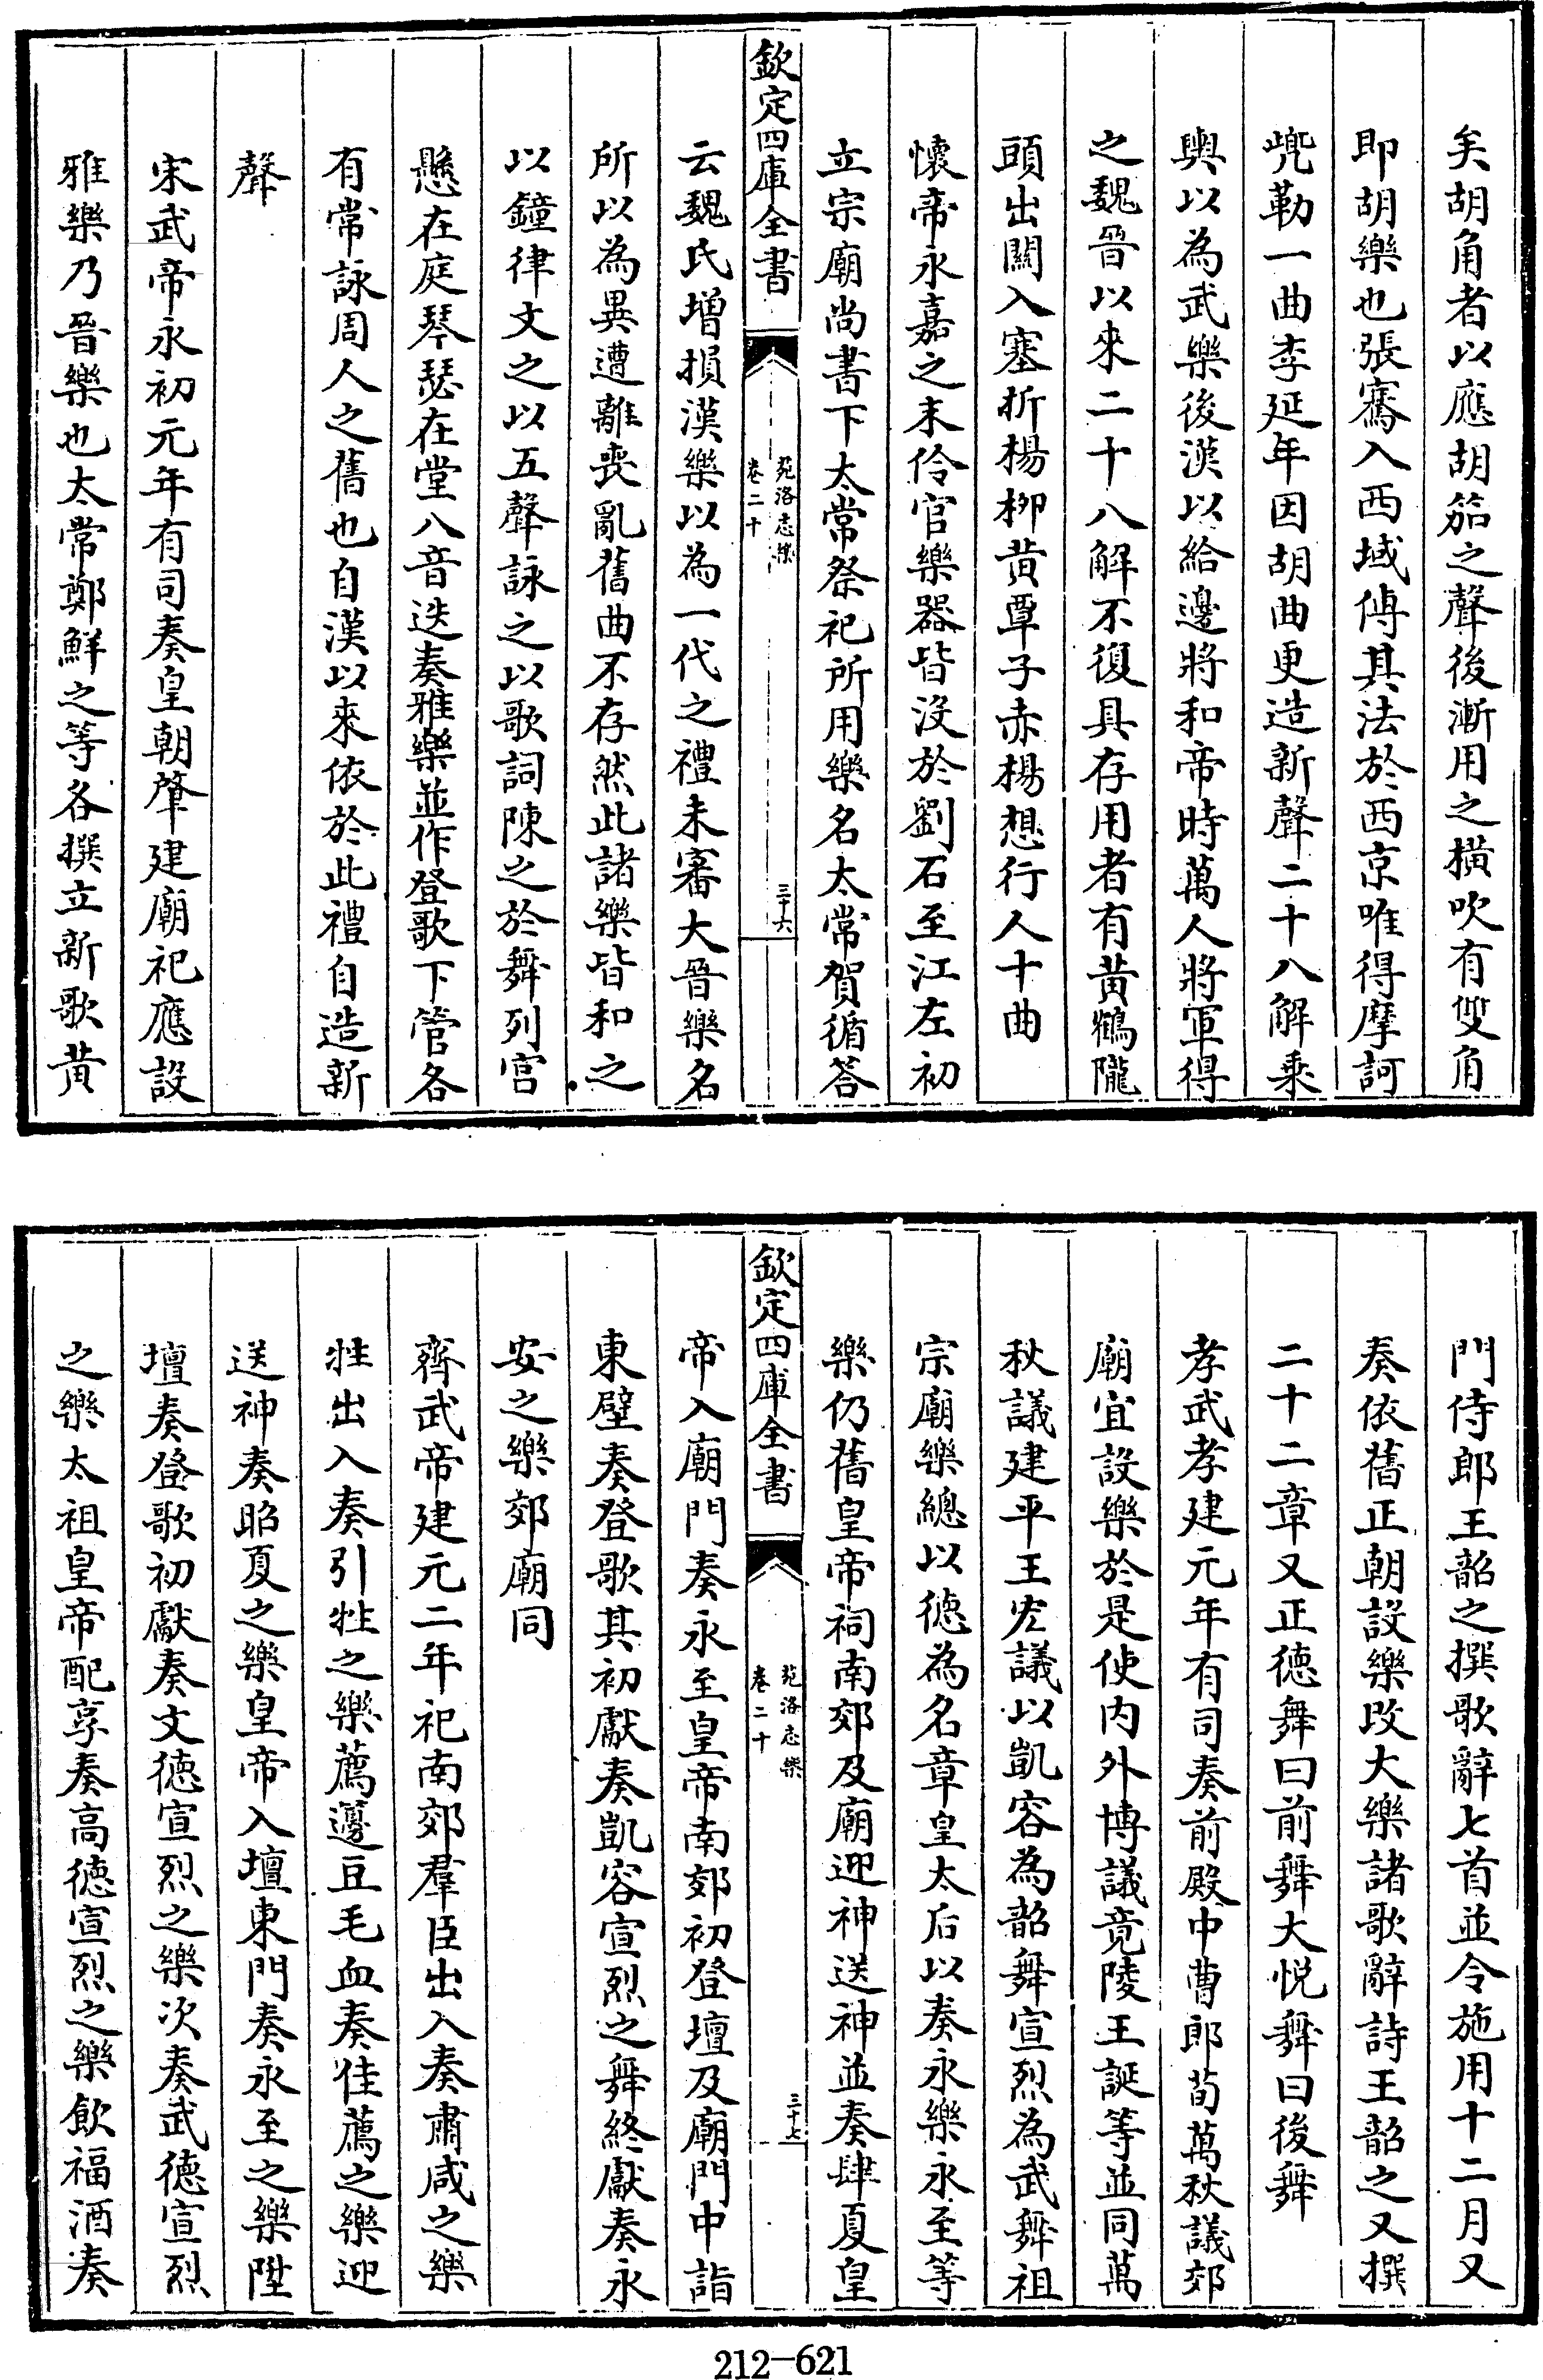 矣胡角者以應胡笳之聲後漸用之橫吹有雙角
即胡樂也張騫入西域傳其法於西京唯得摩訶
兜勒一曲李延年因胡曲更造新聲二十八解乘
輿以為武樂後漢以給邊將和帝時萬人將軍得
之魏晉以來二十八解不復具存用者有黃鶴隴
頭出關入塞折楊柳黃覃子赤楊想行人十曲
懷帝永嘉之末伶官樂器皆沒於劉石至江左初
立宗廟尚書下太常祭祀所用樂名太常賀循答
欽定四庫全書
苑洛志樂
卷二十
三十六
云魏氏增損漢樂以為一代之禮未審大晉樂名
所以為異遭離喪亂舊曲不存然此諸樂皆和之
以鐘律文之以五聲詠之以歌詞陳之於舞列宮
懸在庭琴瑟在堂八音迭奏雅樂並作登歌下管各
有常詠周人之舊也自漢以來依於此禮自造新
聲
宋武帝永初元年有司奏皇朝肇建廟祀應設
雅樂乃晉樂也太常鄭鮮之等各撰立新歌黃
門侍郎王韶之撰歌辭七首並令施用十二月又
奏依舊正朝設樂改大樂諸歌辭詩王韶之又撰
二十二章又正德舞曰前舞大悅舞曰後舞
孝武孝建元年有司奏前殿中曹郎荀萬秋議郊
廟宜設樂於是使內外博議竟陵王誕等並同萬
秋議建平王宏議以凱容為韶舞宣烈為武舞祖
宗廟樂總以德為名章皇太后以奏永樂永至等
樂仍舊皇帝祠南郊及廟迎神送神並奏肆夏皇
欽定四庫全書
苑洛志樂
卷二十
三十七
帝入廟門奏永至皇帝南郊初登壇及廟門中詣
東壁奏登歌其初獻奏凱容宣烈之舞終獻奏永
安之樂郊廟同
齊武帝建元二年祀南郊羣臣出入奏肅咸之樂
牲出入奏引牲之樂薦籩豆毛血奏佳薦之樂迎
送神奏昭夏之樂皇帝入壇東門奏永至之樂陞
壇奏登歌初獻奏文德宣烈之樂次奏武德宣烈
之樂太祖皇帝配享奏高德宣烈之樂飲福酒奏
212-621